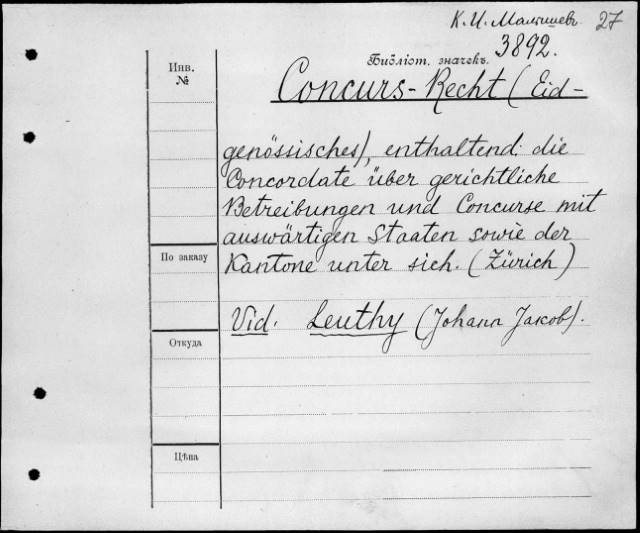 К. И. Малышевъ. 27
3892.
Библіот. значекъ.
Инв.
№
Concurs-Recht (Eid-
genössisches), enthaltend: die
Concordate über gerichtliche
Betreibungen und Concurse mit
auswärtigen Staaten sowie der
Kantone unter sich. (Zürich)
По заказу
Vid. Leuthy (Johann Jakob).
Откуда
Цѣна